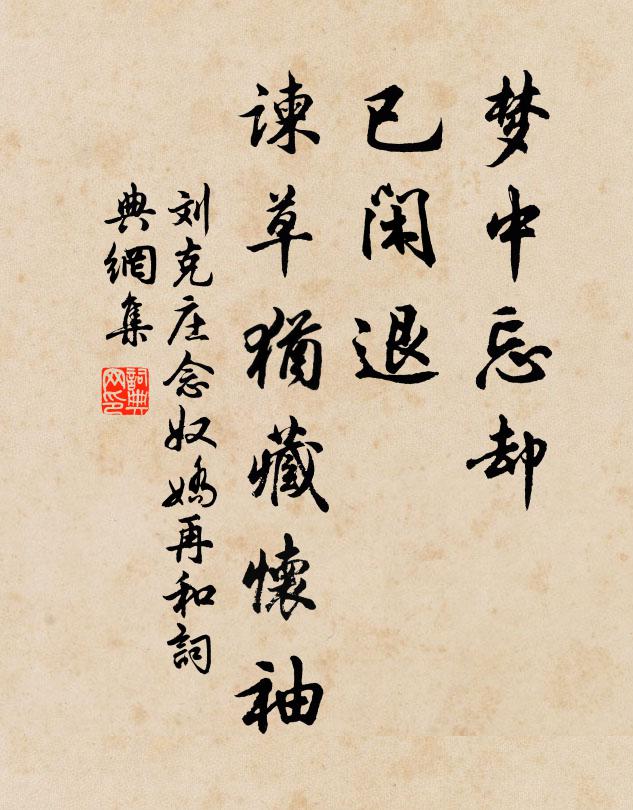 梦中忘却
已闲退
谏草犹藏怀袖
刘克庄念奴娇再和詞
典網集
詞典网印